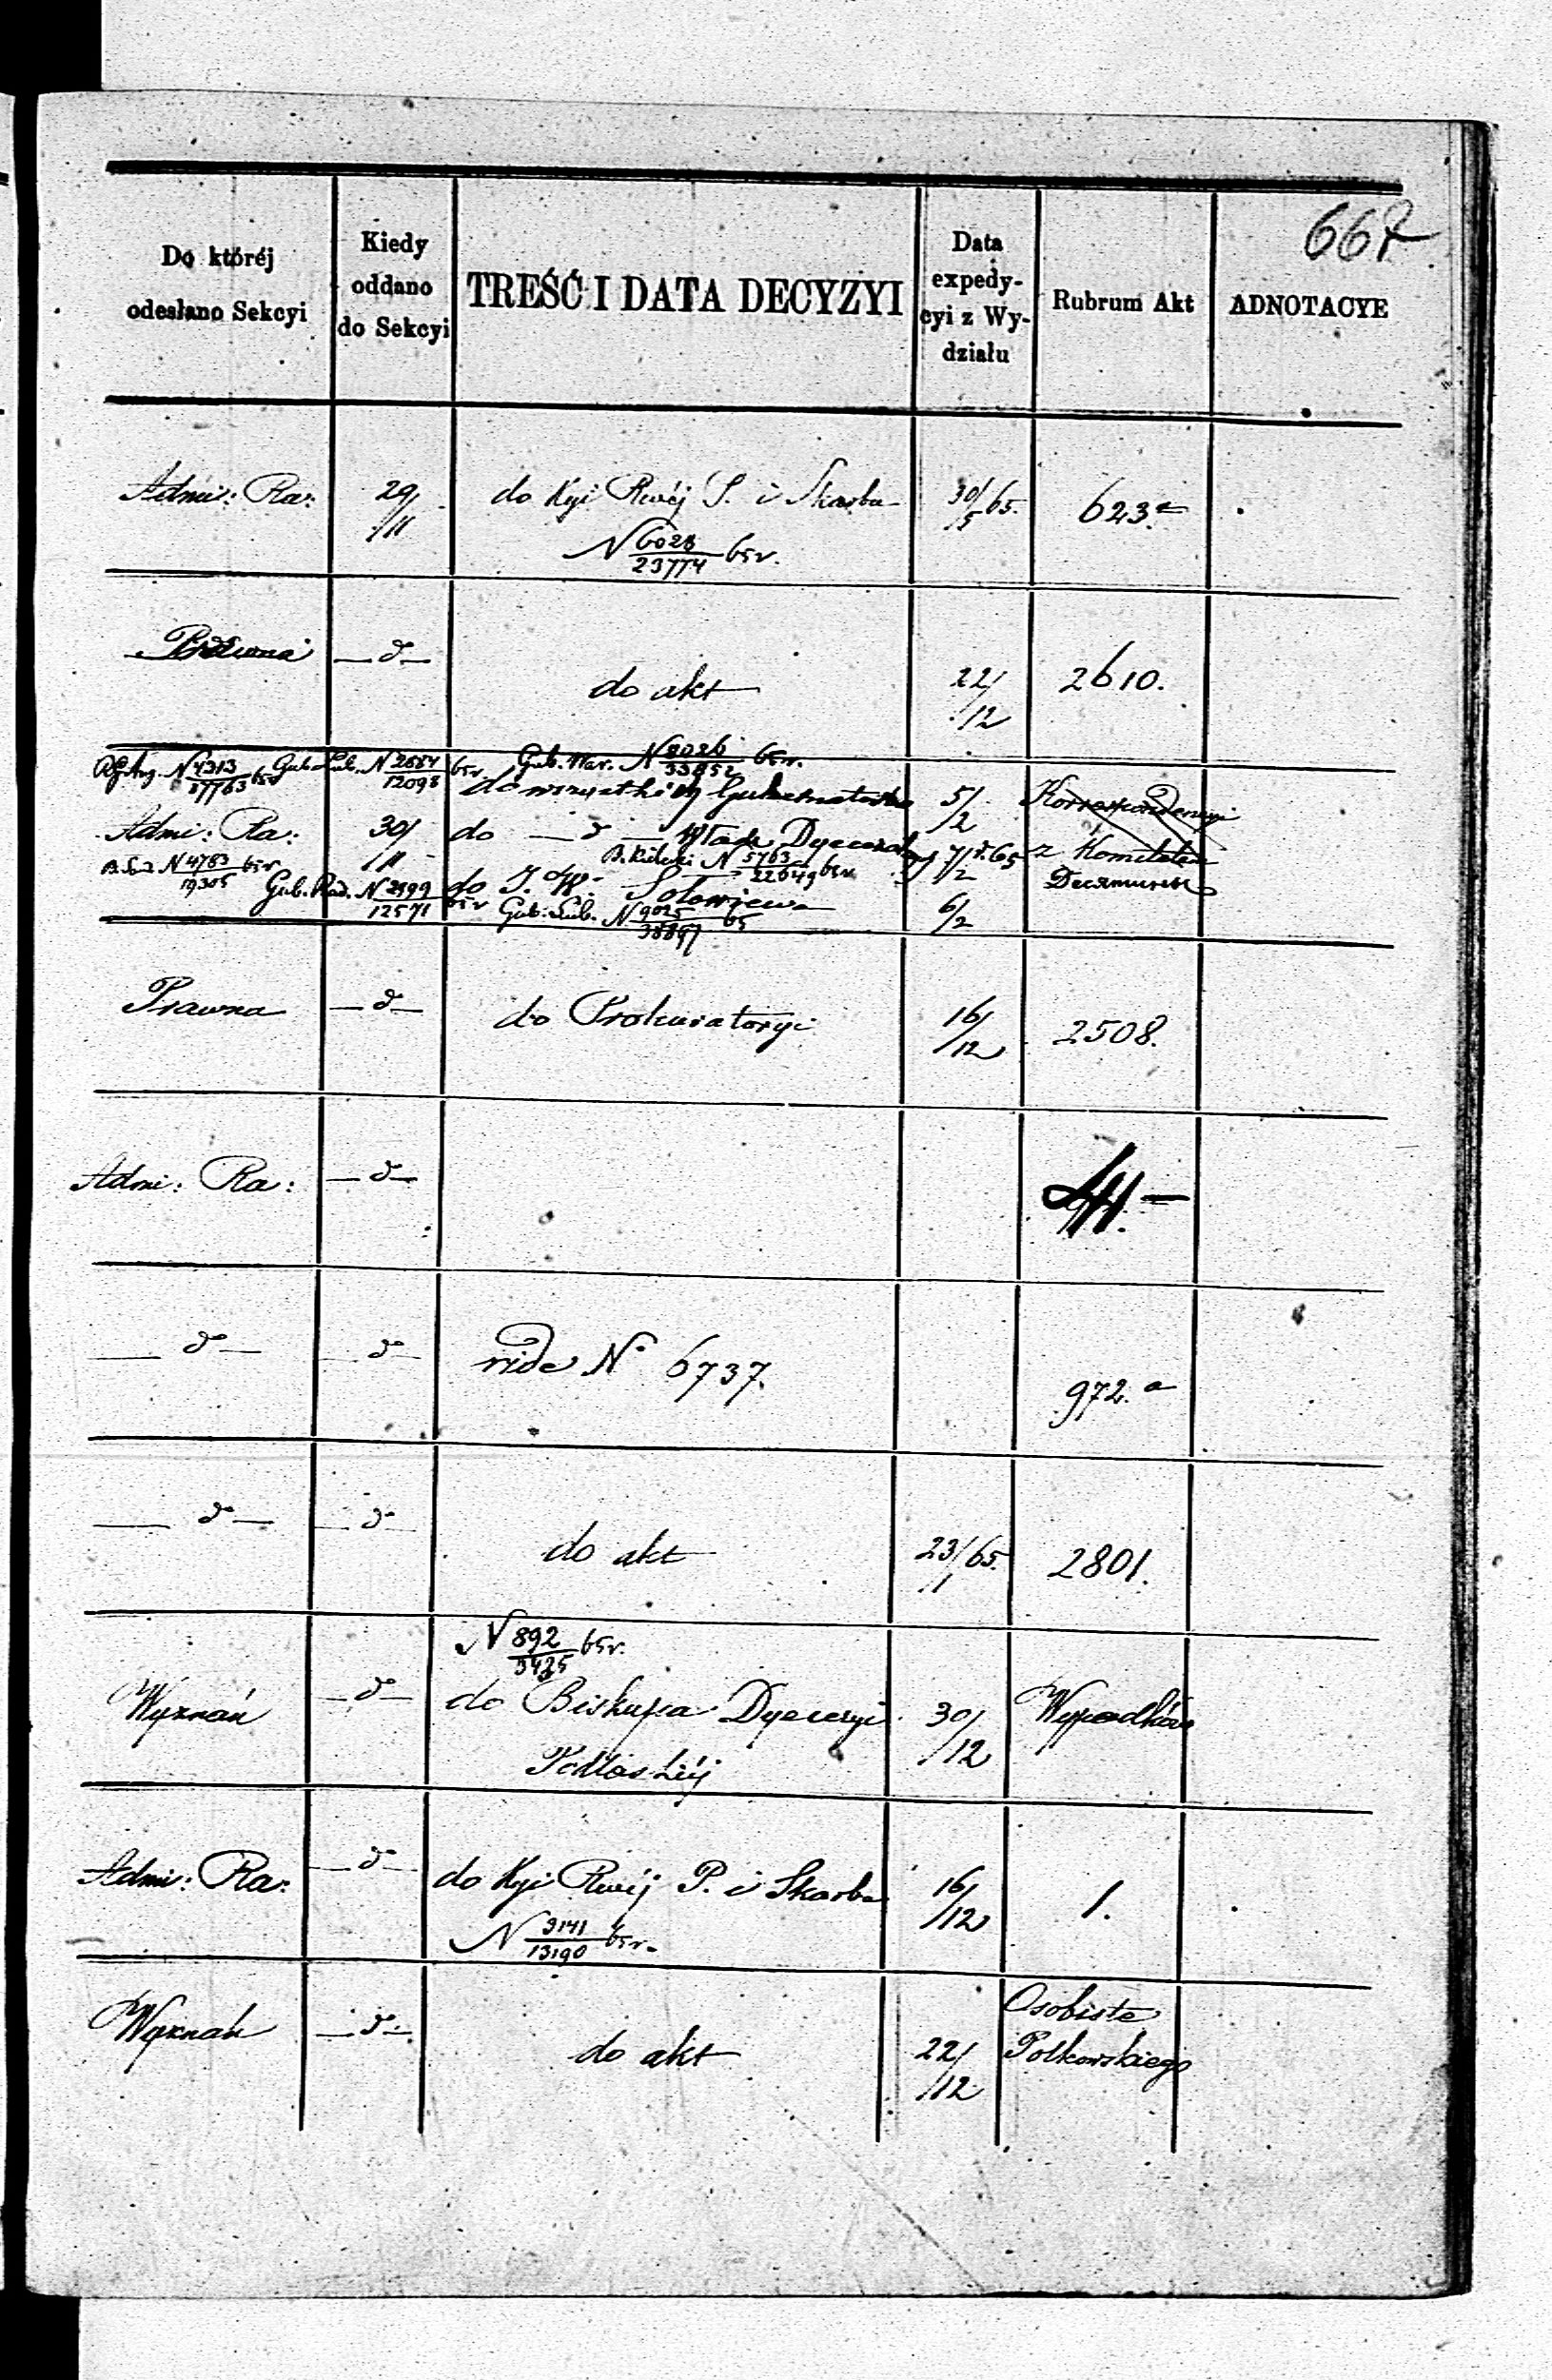 667
Do któréj
odesłano Sekcyi
Kiedy
oddano
do Sekcyi
TREŚĆ I DATA DECYZYI
Data
expedy-
cyi z Wy-
działu
Rubrum Akt
ADNOTACYE
Admi: Ra: 29/11 do Kyi Rwéj P. i Skarbu 30/5 65. 623.a
N 6028/23774 65r.
Prawna — d — do akt 22/12 2610.
N 4313/37763 65r Gub. Lub. N 2684/12098 65r Gub. War. N 8026/33852 65r.
do wszystkich Gubernatorów 5/2 Korrespondencyi
Admi: Ra: 30/11 do — d — Władz Dyecezal. 7/2 r. 65 z Komitetem
N 4783/19305 65r B. Kielecki N 5763/22649 65r
Gub. Rad. N 2899/12571 65r do J. W. Sołowiewa 6/2
Gub. Lub. N 9025/38897 65
Prawna — d — do Prokuratoryi 16/12 2508.
Admi: Ra: — d —
— d — — d — vide No 6737. 972.a
— d — — d — do akt 23/1 65. 2801.
N 892/3425 65r.
Wyznań — d — do Biskupa Dyecezyi 30/12 Wypadków
Podlaskiéj
Admi: Ra: — d — do Kyi Rwéj P. i Skarbu 16/12 1.
N 3141/13190 65r.
Wyznań — d — do akt 22/12 Osobiste
Polkowskiego